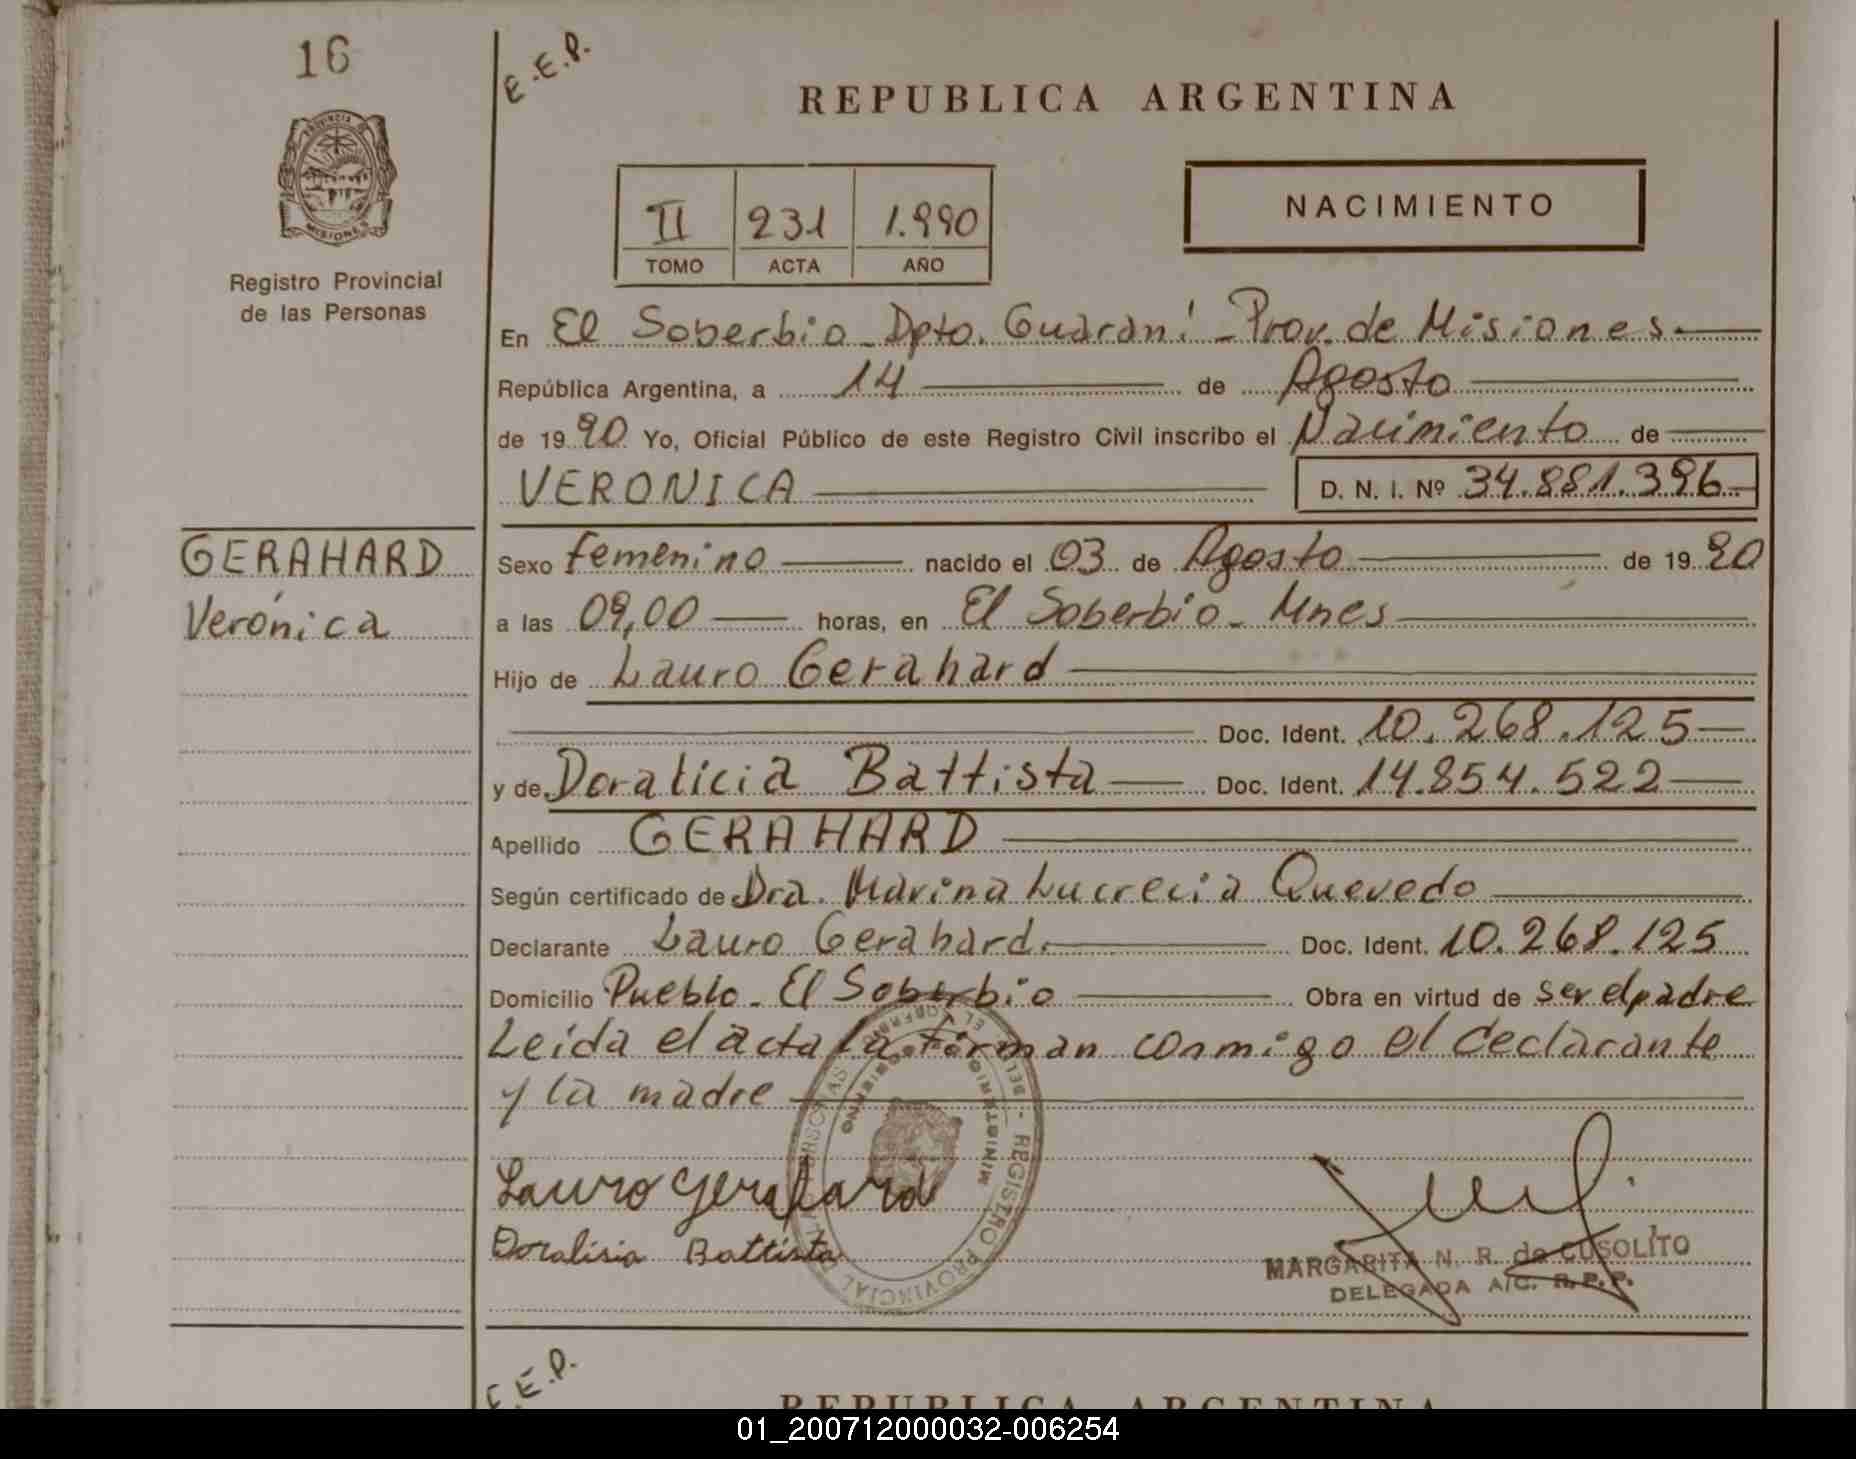 16
E.E.P.
REPUBLICA ARGENTINA
PROVINCIA DE
MISIONES
Registro Provincial
de las Personas
II 231 1.990
TOMO ACTA AÑO
NACIMIENTO
En El Soberbio - Dpto. Guaraní - Prov. de Misiones
República Argentina, a 14 de Agosto
de 19 90 Yo, Oficial Público de este Registro Civil inscribo el Nacimiento de
VERONICA D. N. I. Nº 34.881.396
GERAHARD
Verónica
Sexo Femenino nacido el 03 de Agosto de 19 90
a las 09,00 horas, en El Soberbio - Mnes
Hijo de Lauro Gerahard
Doc. Ident. 10.268.125
y de Doralicia Battista Doc. Ident. 14.854.522
Apellido GERAHARD
Según certificado de Dra. Marina Lucrecia Quevedo
Declarante Lauro Gerahard. Doc. Ident. 10.268.125
Domicilio Pueblo - El Soberbio Obra en virtud de ser el padre
Leída el acta la firman conmigo el declarante
y la madre
Lauro Gerahard
Doralisia Battista
REGISTRO PROVINCIAL DE LAS PERSONAS
MINISTERIO DE GOBIERNO
MARGARITA N. R. de CUSOLITO
DELEGADA A/C. R.P.P.
E.E.P.
REPUBLICA ARGENTINA
01_200712000032-006254